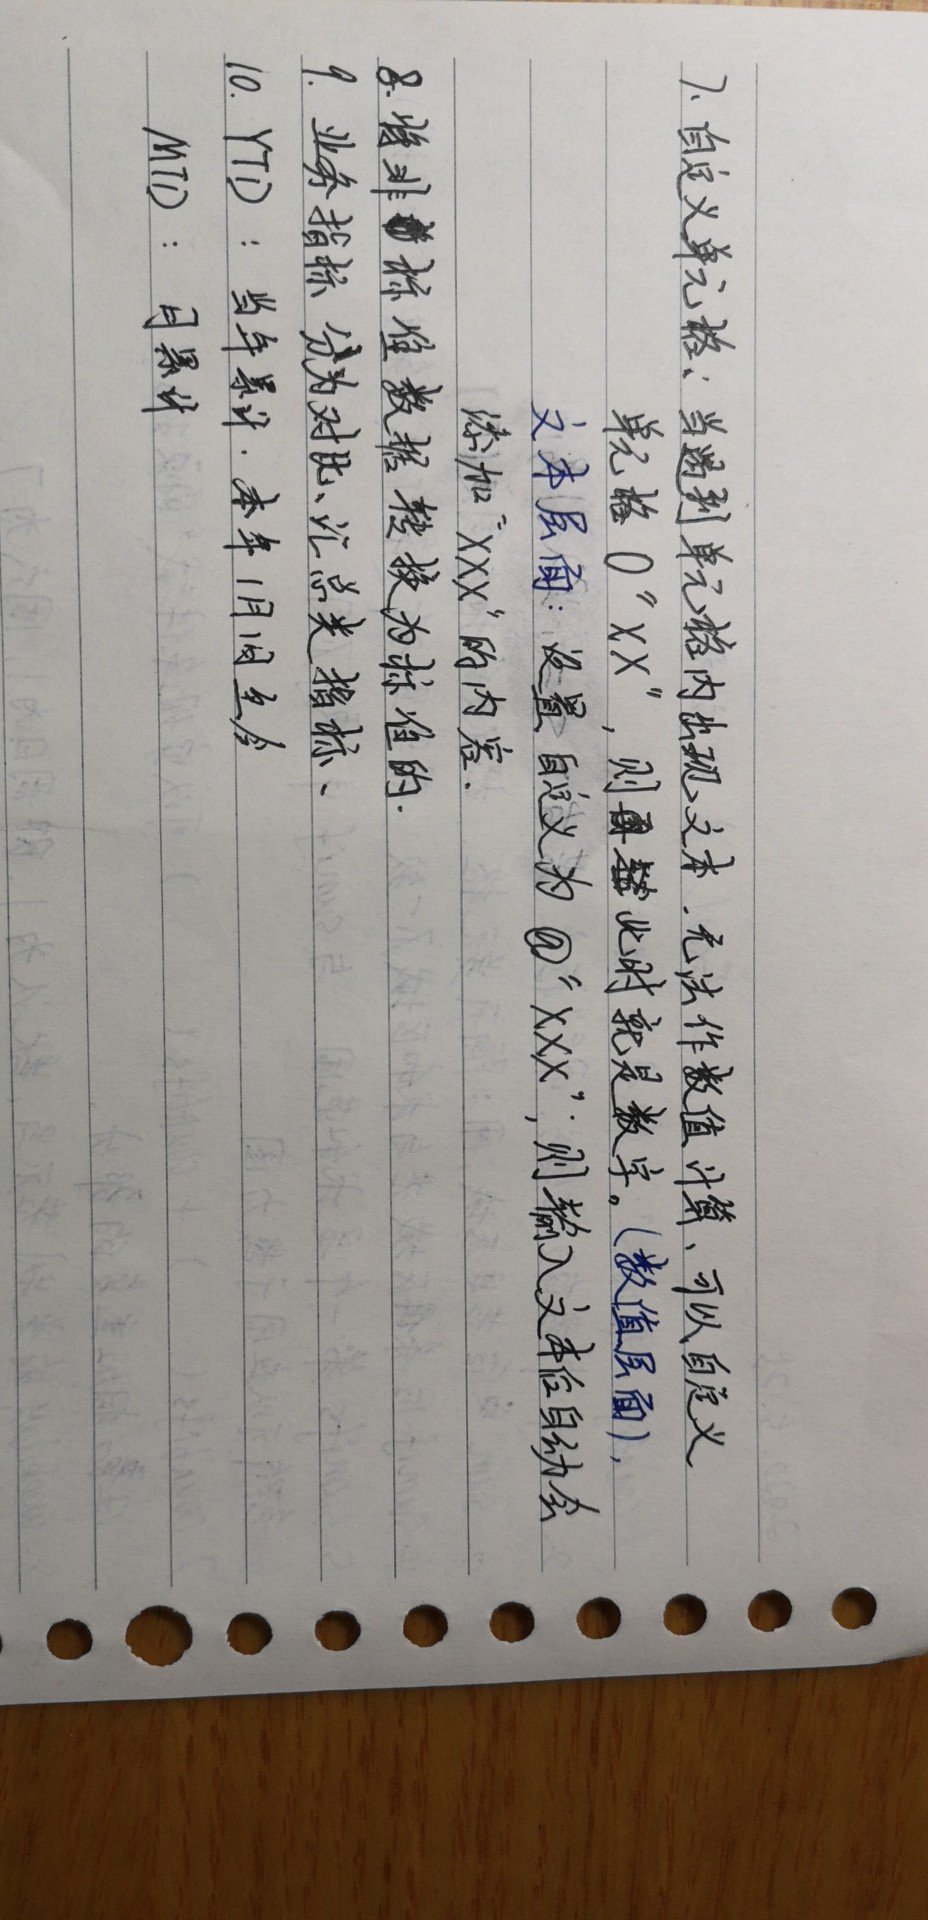 7. 自定义单元格：当遇到单元格内出现文本.无法作数值计算、可以自定义
单元格 0"XX"，则再输此时就是数字。(数值层面),
文本层面：设置自定义为 @"XXX"，则输入文本后自动会
添加"XXX"的内容.
8. 将非标准数据转换为标值的.
9. 业务指标分为对比、汇总类指标、
10. YTD：当年累计.本年1月向至今
MTD：月累计